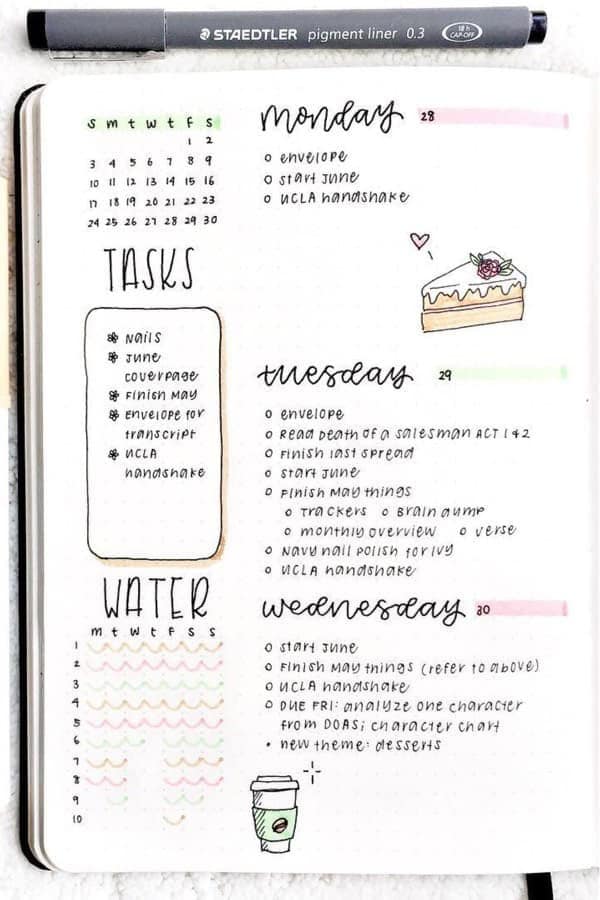 STAEDTLER pigment liner 0.3 18h CAP-OFF
S m t w t F S
1 2
3 4 5 6 7 8 9
10 11 12 13 14 15 16
17 18 19 20 21 22 23
24 25 26 27 28 29 30
TASKS
Nails
June
coverpage
Finish May
Envelope for
transcript
UCLA
handshake
WATER
m t w t F S S
1
2
3
4
5
6
7
8
9
10
monday 28
envelope
start June
UCLA handshake
tuesday 29
envelope
Read Death of a Salesman ACT 1 & 2
Finish last spread
start June
Finish May things
Trackers Brain dump
monthly overview verse
Navy nail polish for Ivy
UCLA handshake
wednesday 30
start June
Finish May things (refer to above)
UCLA handshake
DUE FRI: analyze one character
from DOAS; character chart
new theme: desserts